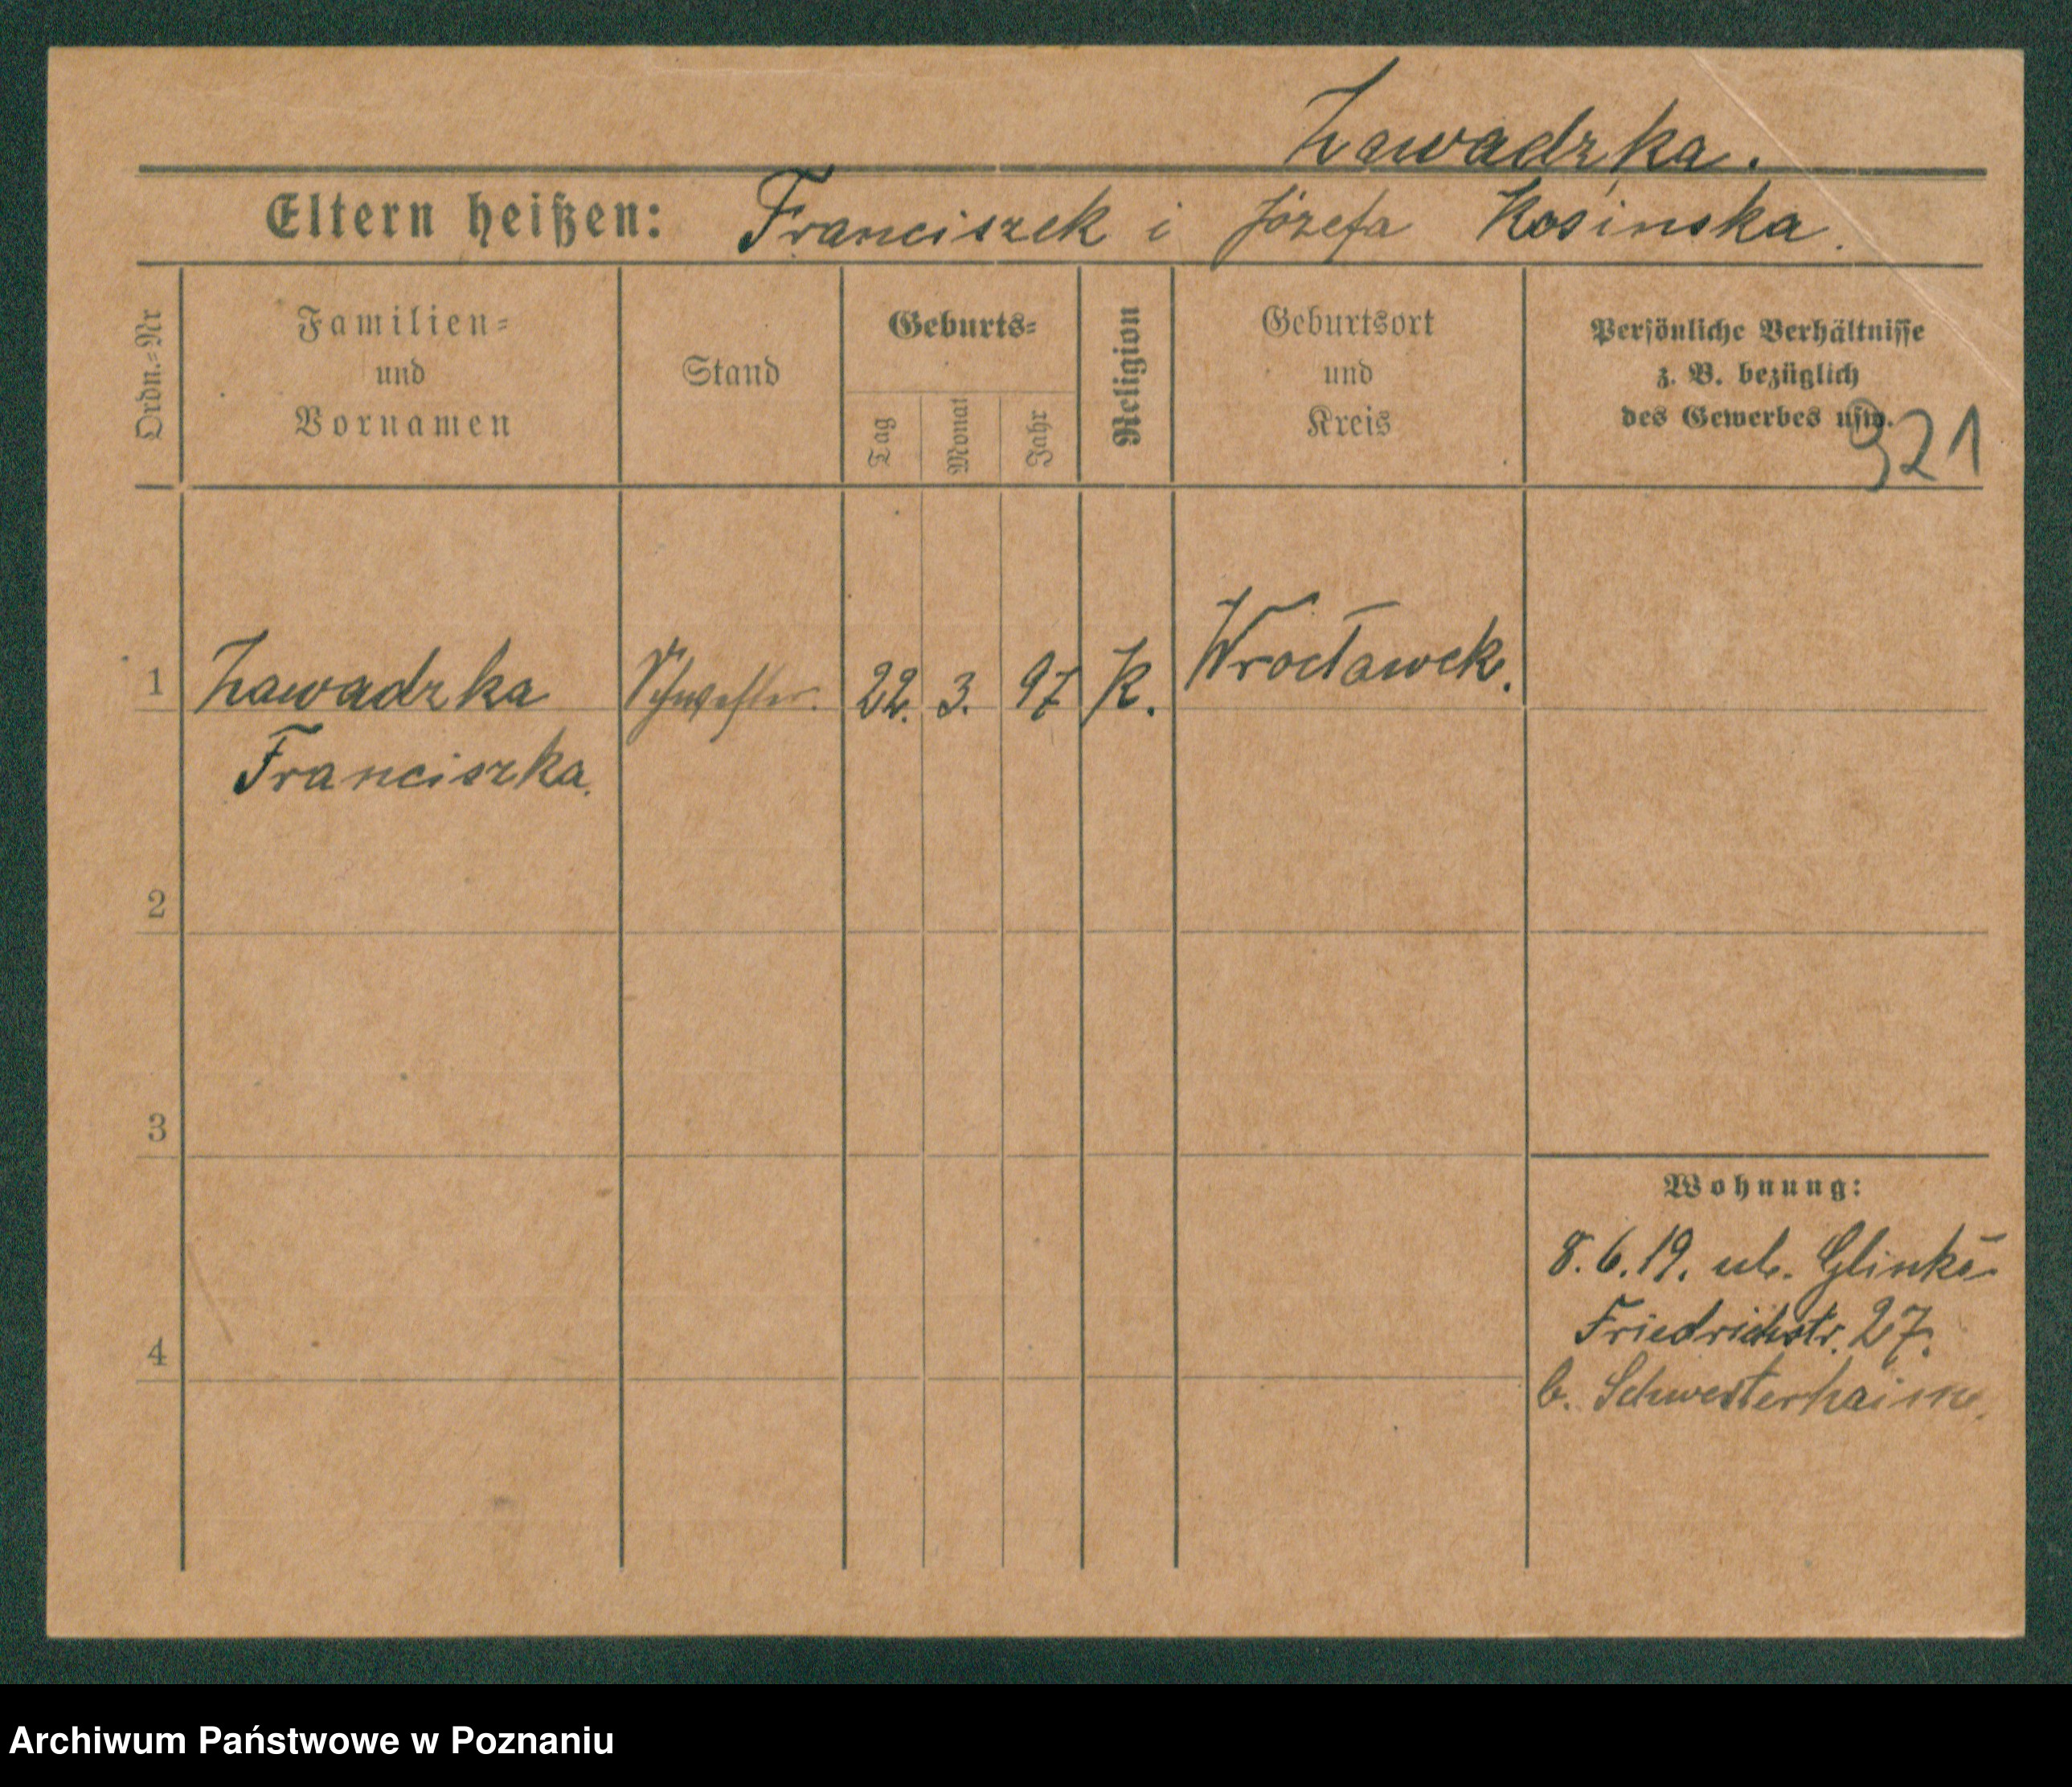 Zawadzka.
Eltern heißen: Franciszek i Józefa Kosinska.
Ordn.=Nr
Familien=
und
Vornamen
Stand
Geburts=
Tag
Monat
Jahr
Religion
Geburtsort
und
Kreis
Persönliche Verhältnisse
z. B. bezüglich
des Gewerbes usw.
921
1 Zawadzka Schwester. 22. 3. 97 K. Wrocławek.
Franciszka.
2
3
4
Wohnung:
8.6.19. ul. Glinki
Friedrichstr. 27.
b. Schwesterhaim.
Archiwum Państwowe w Poznaniu